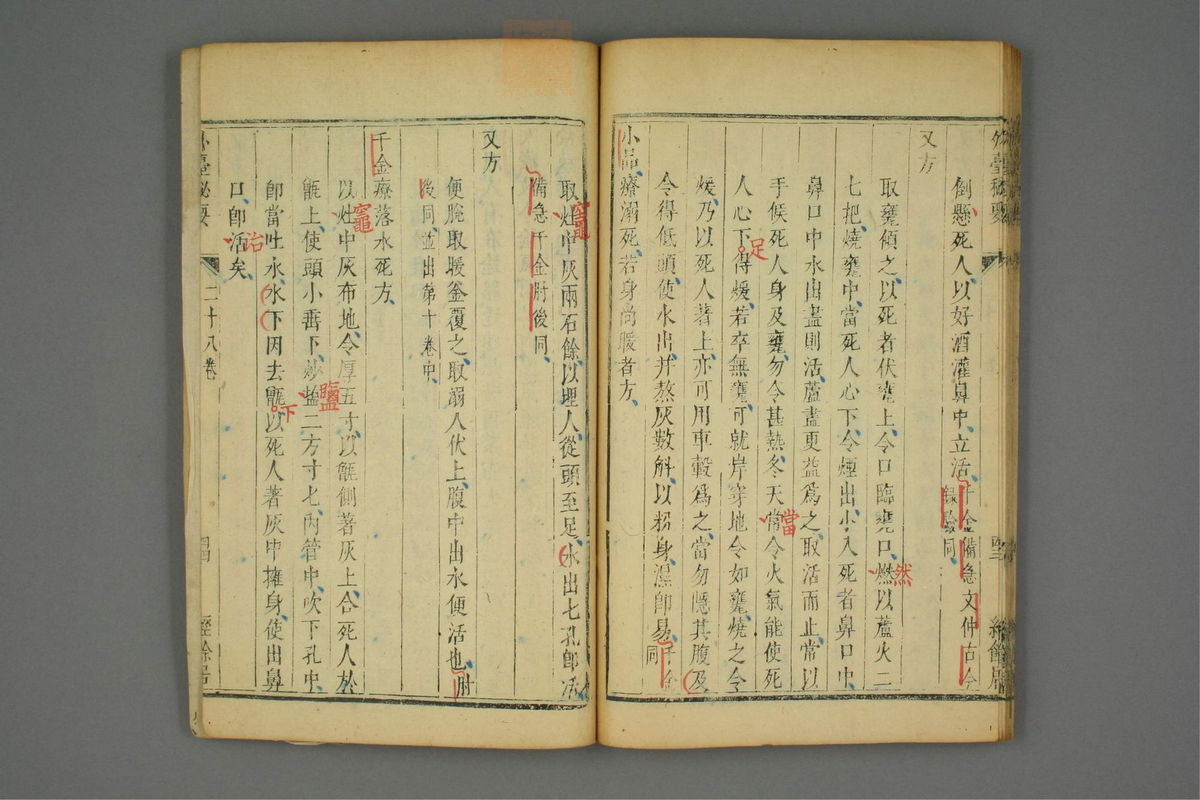 外臺秘要
四三
經餘居
倒懸死人以好酒灌鼻中立活千金備急文仲古今
錄驗同
又方
取甕傾之以死者伏甕上令口臨甕口燃以蘆火二
然
七把燒甕中當死人心下令煙出小入死者鼻口中
鼻口中水出盡則活蘆盡更益爲之取活而止常以
當
手候死人身及甕勿令甚熱冬天常令火氣能使死
足
人心下得煖若卒無甕可就岸穿地令如甕燒之令
煖乃以死人著上亦可用車轂爲之當勿隱其腹及
令得低頭使水出并熬灰數斛以粉身濕卽易千金
同
小品療溺死若身尚暖者方
取灶中灰兩石餘以埋人從頭至足水出七孔卽活
竈
備急千金肘後同
又方
便脫取暖釜覆之取溺人伏上腹中出水便活也肘
後同並出第十卷中
千金療落水死方
以灶中灰布地令厚五寸以甑側著灰上合死人於
竈
甑上使頭小垂下炒盐二方寸匕內管中吹下孔中
鹽
卽當吐水水下因去甑以死人著灰中擁身使出鼻
下
口卽活矣
治
外臺秘要
二十八卷
四四
經餘居